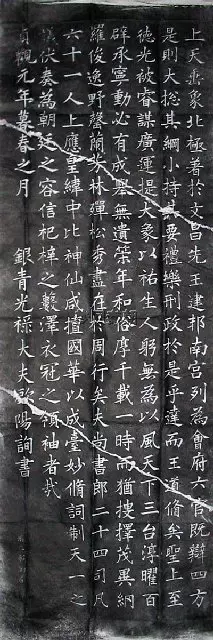 上天垂象北極著於文昌先王建邦南宮列為會府六官既辯四方
是則大捴其綱小持其要禮樂刑政於是乎達而王道脩矣聖上至
德光被睿謀廣運提大象以祐生人躬無為以風天下三台淳曜百
辟承寧動必有成舉無遺策年和俗厚千載一時而猶搜擇茂異網
羅俊逸野罄蘭芳林殫松秀盡在於周行矣夫尚書郎二十四司凡
六十一人上應皇緯中比神仙咸擅國華以成臺妙脩詞制天一之
伏奏為朝廷之容信杞梓之藪澤衣冠之領袖者哉
貞觀元年暮春之月 銀青光祿大夫歐陽詢書